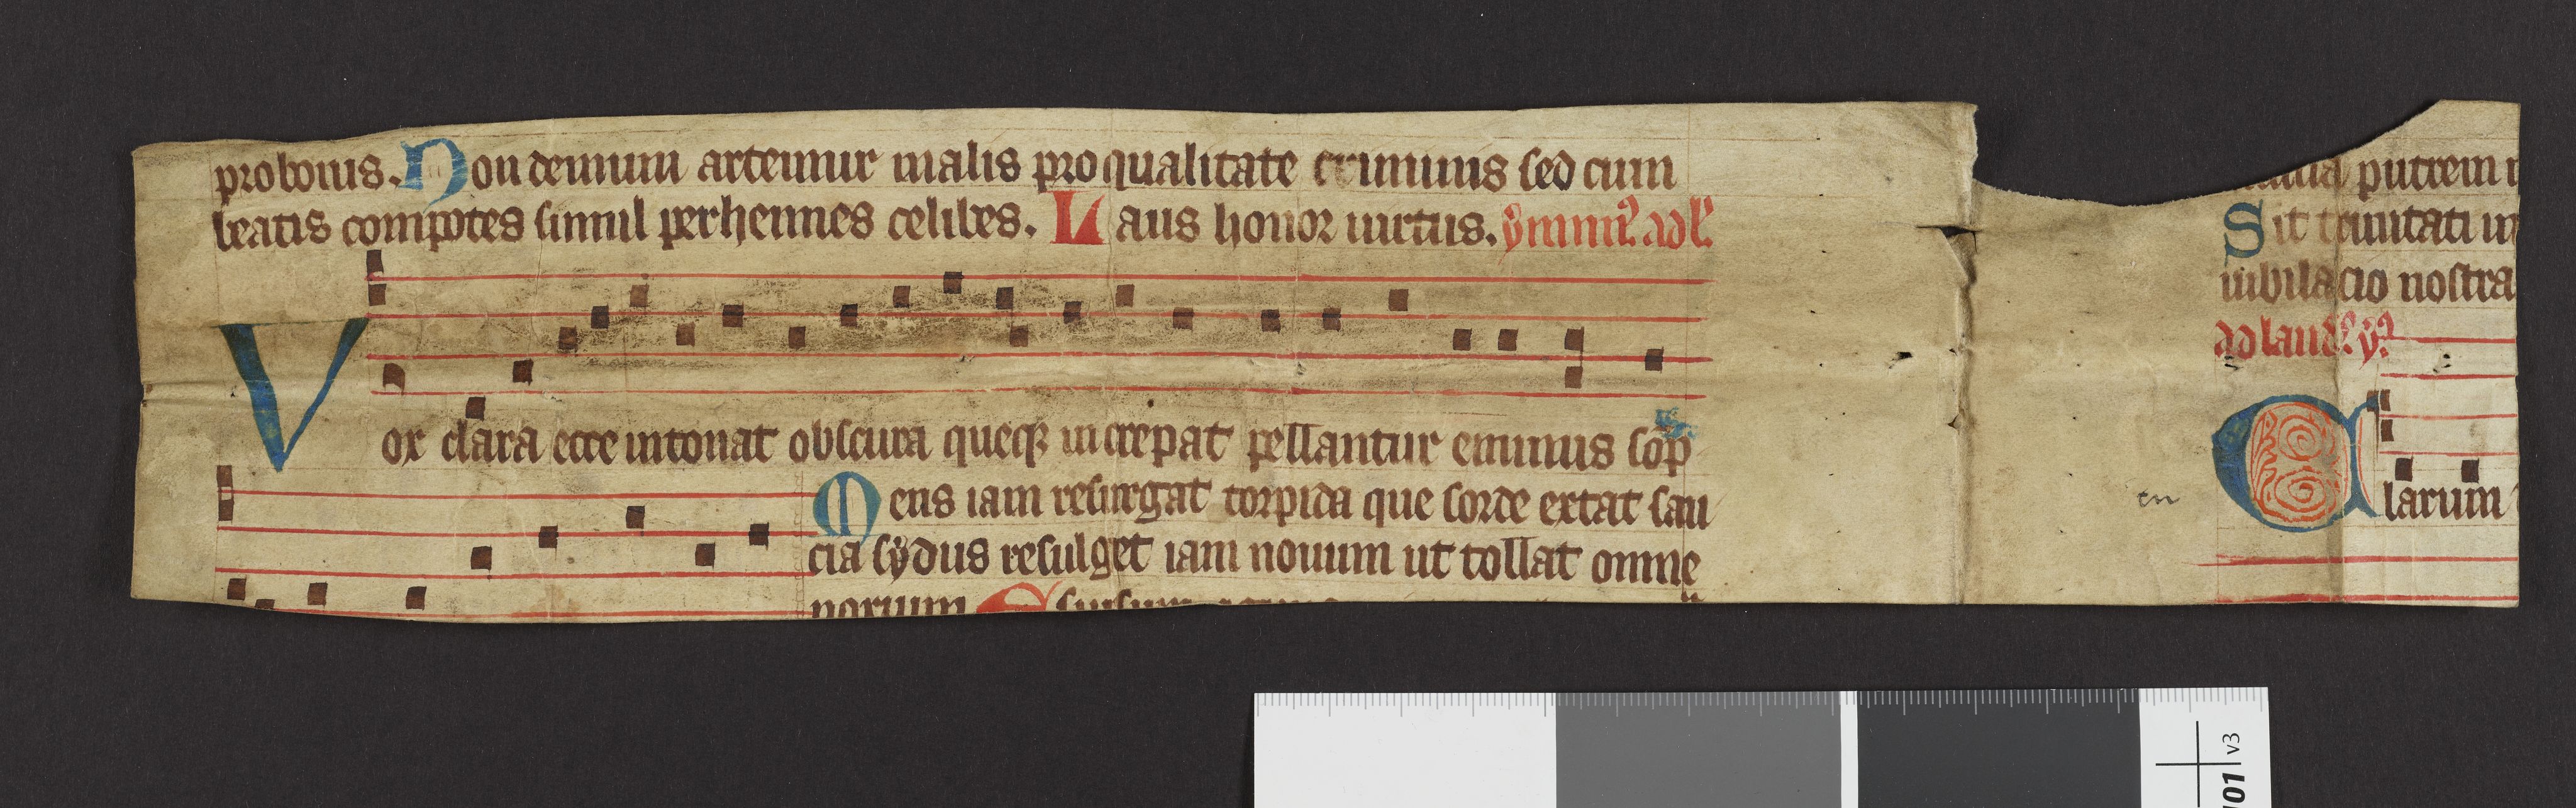 pro bonis. Non demum artemur malis pro qualitate criminis sed cum
beatis compotes simul perhennes celibes. Laus honor uirtus. ẏmnus ad l'
Vox clara ecce intonat obscura queque increpat pellantur eminus sop
Mens iam resurgat torpida que sorde extat sau
cia sẏdus resulget iam nouum ut tollat omne
putrem
Sit trinitati
iubilacio nostra
ad laud' ẏ
Clarum
en
v3